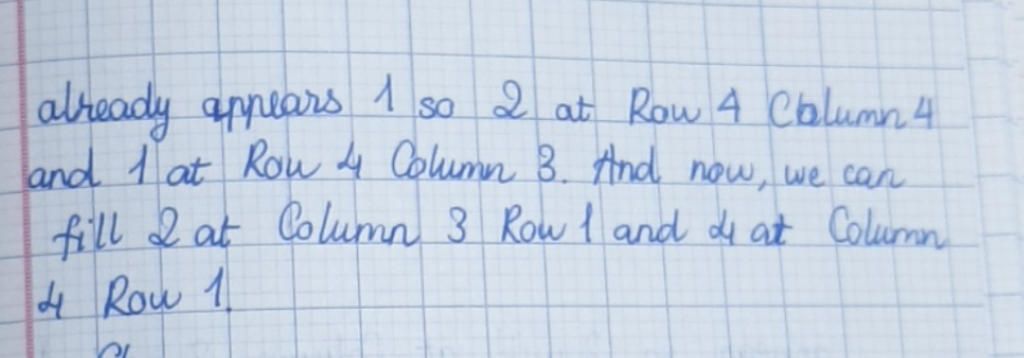 already appears 1 so 2 at Row 4 Column 4
and 1 at Row 4 Column 3. And now, we can
fill 2 at Column 3 Row 1 and 4 at Column
4 Row 1.